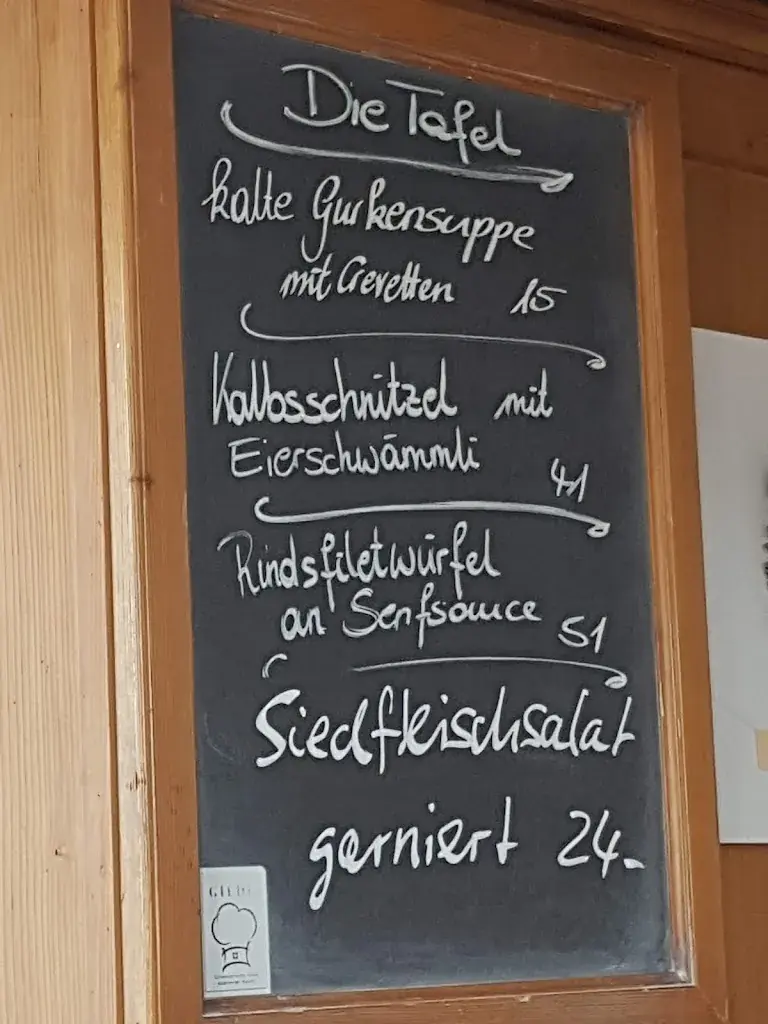 Die Tafel
kalte Gurkensuppe
mit Crevetten 15
Kalbsschnitzel mit
Eierschwämmli
41
Rindsfiletwürfel
an Senfsauce 51
Siedfleischsalat
garniert 24.-